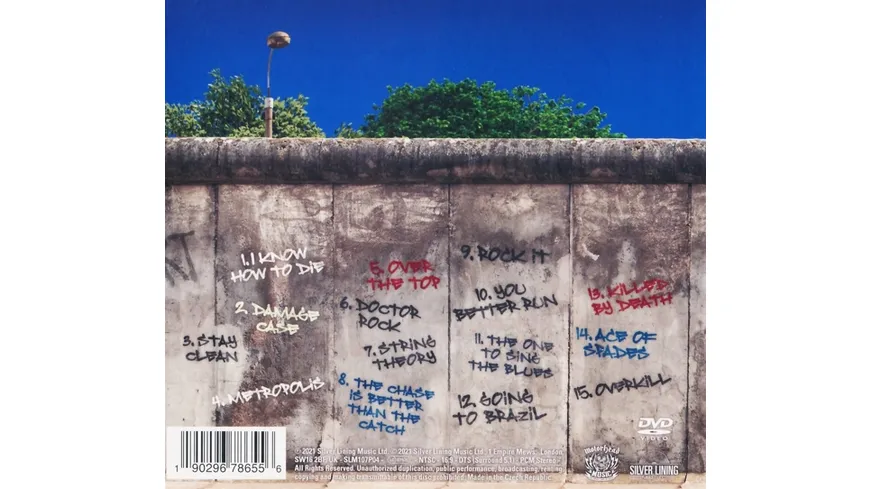 1. I KNOW
HOW TO DIE
2. DAMAGE
CASE
3. STAY
CLEAN
4. METROPOLIS
5. OVER
THE TOP
6. DOCTOR
ROCK
7. STRING
THEORY
8. THE CHASE
IS BETTER
THAN THE
CATCH
9. ROCK IT
10. YOU
BETTER RUN
11. THE ONE
TO SING
THE BLUES
12. GOING
TO BRAZIL
13. KILLED
BY DEATH
14. ACE OF
SPADES
15. OVERKILL
1 90296 78655 6
℗ 2021 Silver Lining Music Ltd. © 2021 Silver Lining Music Ltd. 1 Empire Mews, London,
SW16 2BF UK - SLM107P04 - NTSC - 16:9 - DTS (Surround 5.1) / PCM Stereo
All Rights Reserved. Unauthorized duplication, public performance, broadcasting, renting
copying and making transmission of this disc prohibited. Made in the Czech Republic.
DVD
VIDEO
Motörhead
MUSIC
SILVER LINING